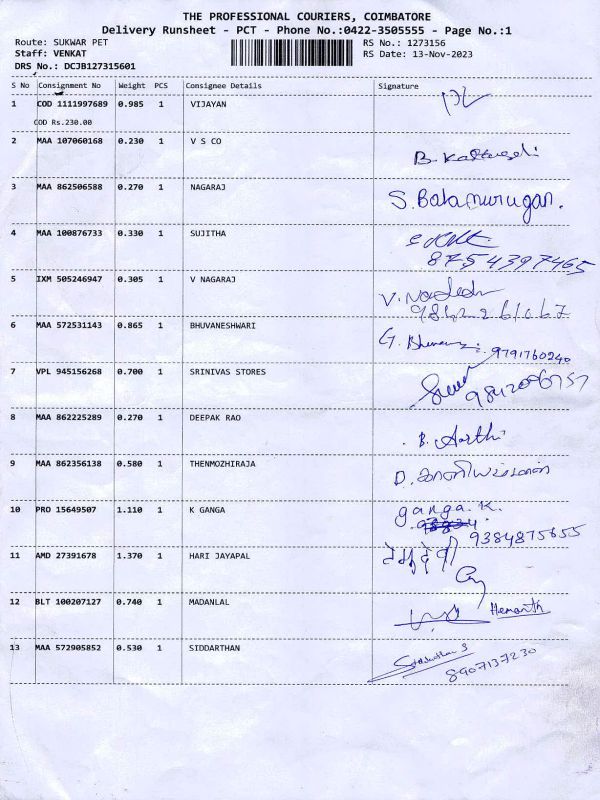 THE PROFESSIONAL COURIERS, COIMBATORE
Delivery Runsheet - PCT - Phone No.:0422-3505555 - Page No.:1
Route: SUKWAR PET RS No.: 1273156
Staff: VENKAT RS Date: 13-Nov-2023
DRS No.: DCJB127315601
S No Consignment No Weight PCS Consignee Details Signature
1 COD 1111997689 0.985 1 VIJAYAN
COD Rs.230.00
2 MAA 107060168 0.230 1 V S CO
B.
3 MAA 862506588 0.270 1 NAGARAJ S. Balamurugan.
4 MAA 100876733 0.330 1 SUJITHA
8754397465
5 IXM 505246947 0.305 1 V NAGARAJ V.
6 MAA 572531143 0.865 1 BHUVANESHWARI G.
9791760240
7 VPL 945156268 0.700 1 SRINIVAS STORES
8 MAA 862225289 0.270 1 DEEPAK RAO B. Aarthi
9 MAA 862356138 0.580 1 THENMOZHIRAJA D.
10 PRO 15649507 1.110 1 K GANGA ganga.K.
9384875655
11 AMD 27391678 1.370 1 HARI JAYAPAL
12 BLT 100207127 0.740 1 MADANLAL Hemanth
13 MAA 572905852 0.530 1 SIDDARTHAN Siddarthan S
8907137230